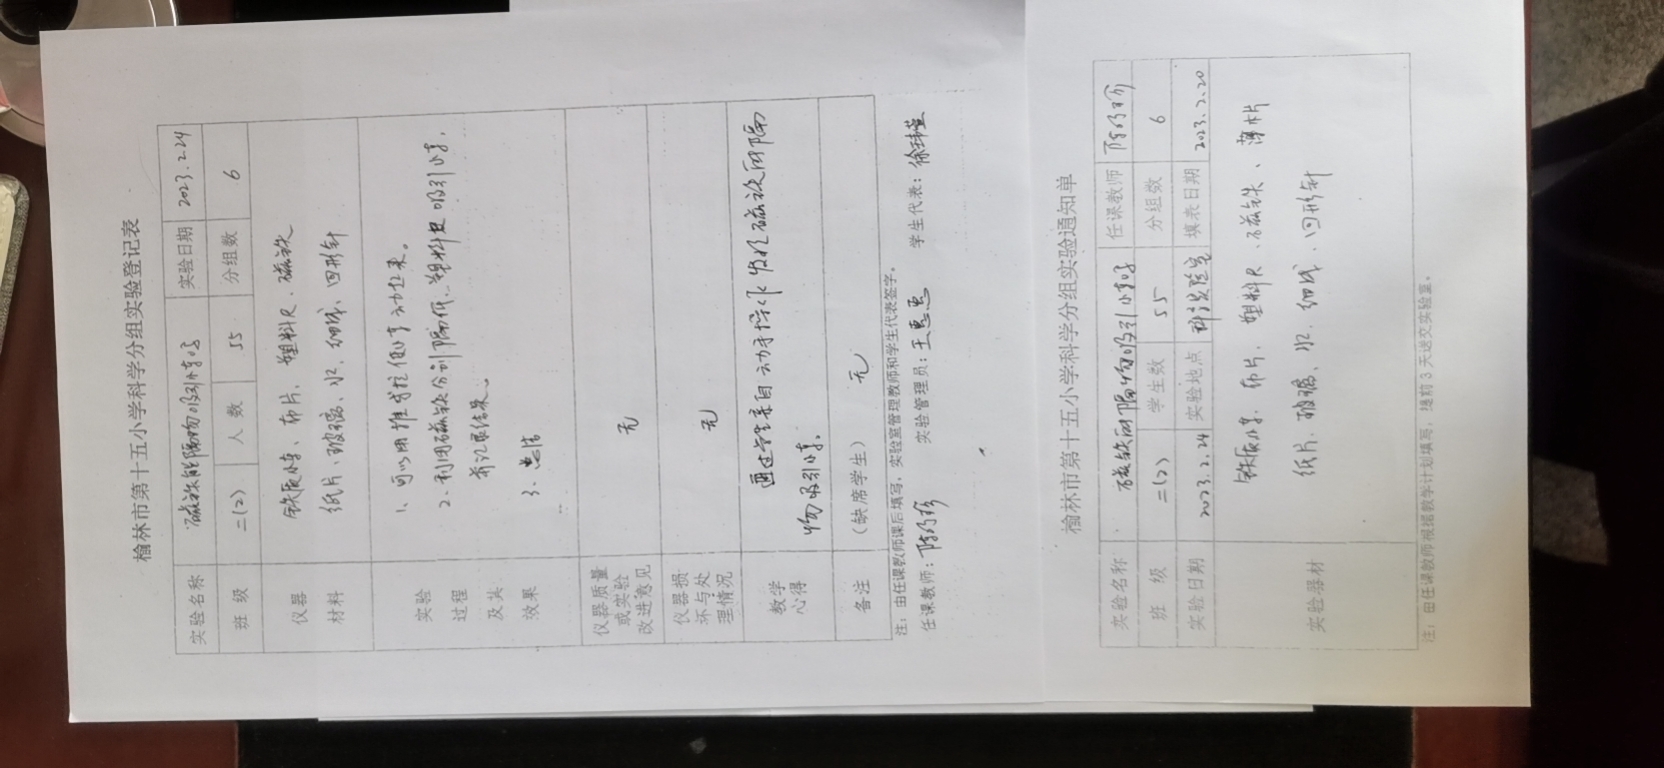 榆林市第十五小学科学分组实验登记表
实验名称 磁铁能隔物吸引小车吗 实验日期 2023.2.24
班 级 二(2) 人 数 55 分组数 6
仪器 铁质小车、布片、塑料尺、磁铁
材料 纸片、玻璃、水、细线、回形针
实验 1、可以用推或拉使小车动起来。
过程 2、利用磁铁分别隔纸、塑料尺吸引小车,
及其 并记录结果。
效果 3、总结
仪器质量
或实验 无
改进意见
仪器损
坏与处 无
理情况
教学 通过学生亲自动手 发现磁铁间隔
心得 物吸引小车。
备注 (缺席学生) 无
注:由任课教师课后填写,实验室管理教师和学生代表签字。
任课教师: 实验管理员:王惠惠 学生代表:
榆林市第十五小学科学分组实验通知单
实验名称 磁铁间隔物吸引小车吗 任课教师
班 级 二(2) 学生数 55 分组数 6
实验日期 2023.2.24 实验地点 科学实验室 填表日期 2023.2.20
实验器材 铁质小车、布片、塑料尺、磁铁、薄木片
纸片、玻璃、水、细线、回形针
注:由任课教师根据教学计划填写,提前3天送交实验室。